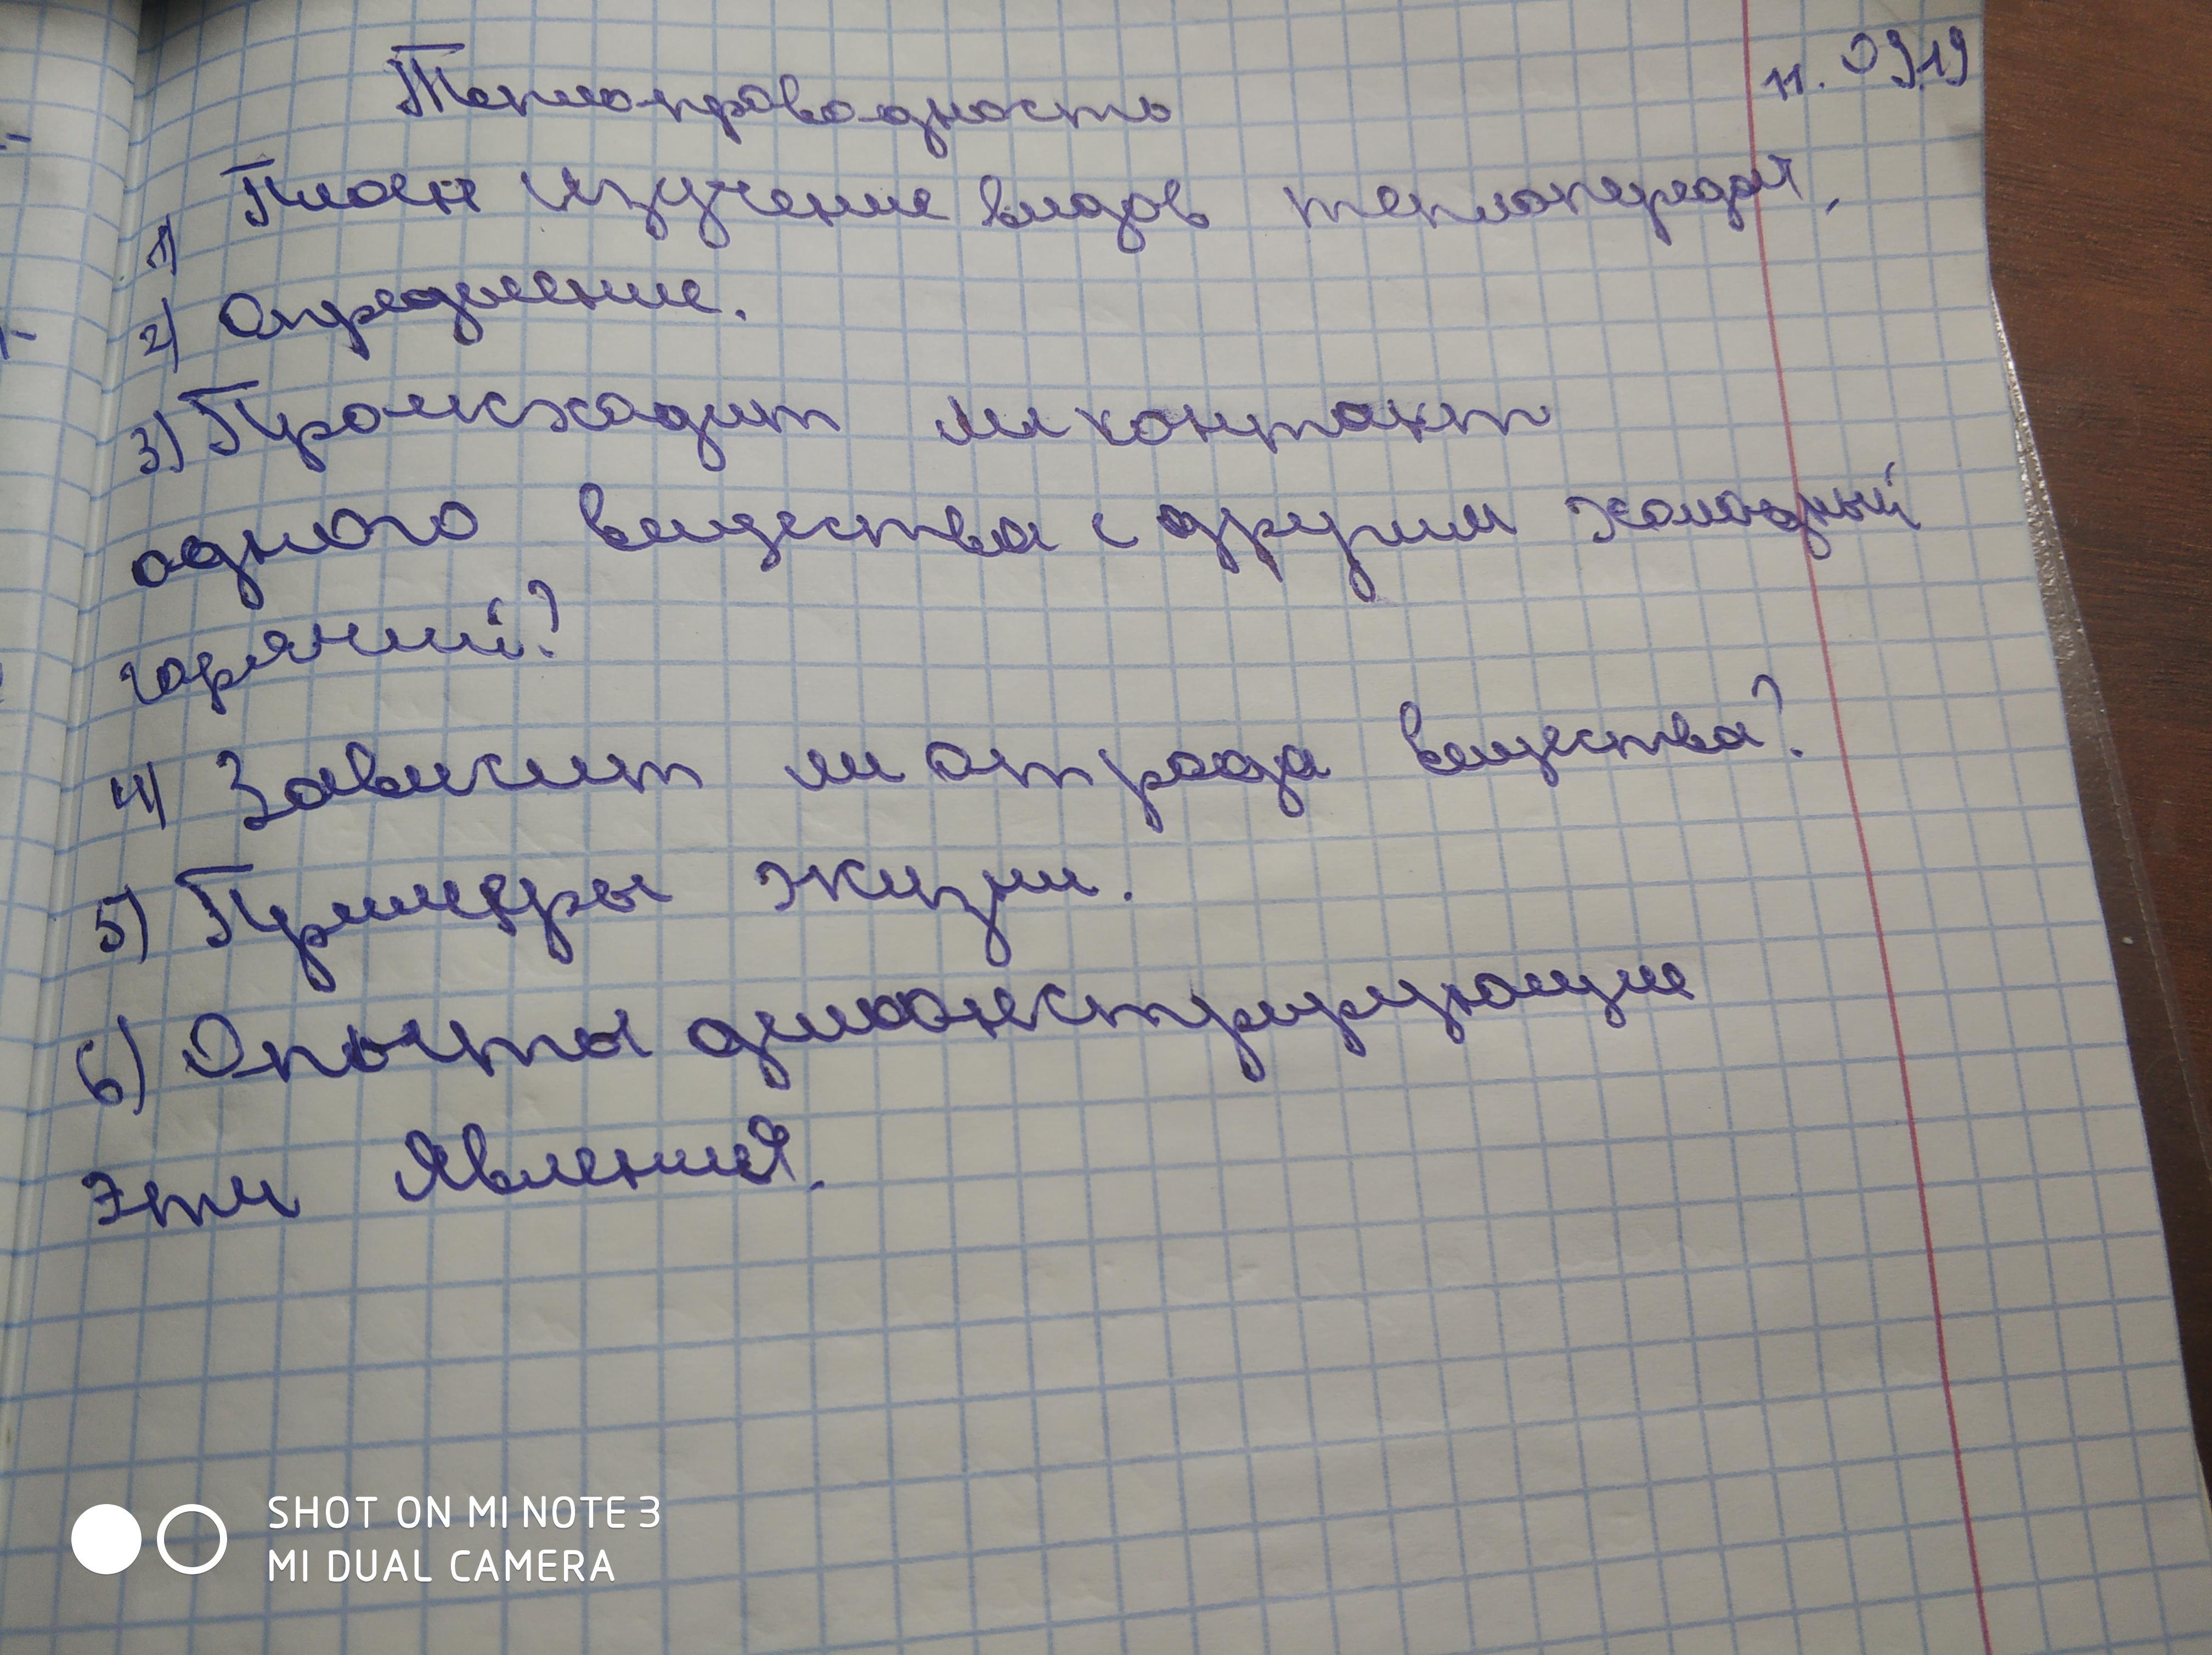 11.09.19
Теплопроводность
1) План изучение видов теплопередач,
2) Определение.
3) Происходит ли контакт
одного вещества с другим холодный
горячий?
4) Зависит ли от рода вещества?
5) Примеры жизни.
6) Опыты демонстрирующие
эти явления.
SHOT ON MI NOTE 3
MI DUAL CAMERA